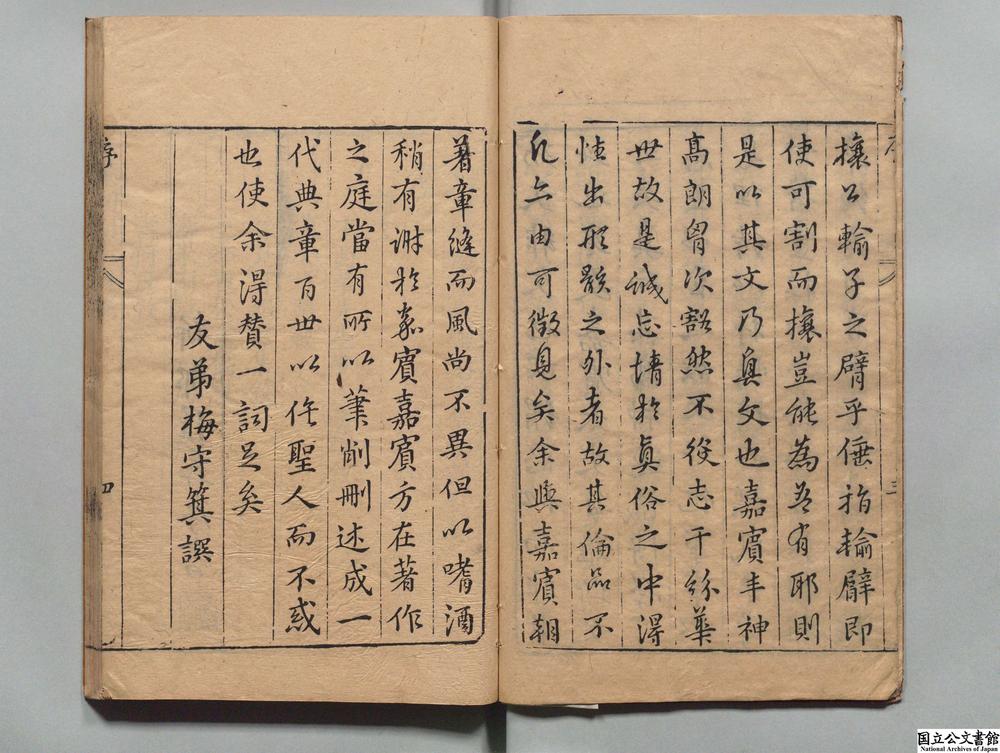 攘公輸子之臂乎倕指輸臂即
使可割而攘豈能為吾有耶則
是以其文乃真文也嘉賓丰神
高朗胷次豁然不役志于紛華
世故是誠忘情於真俗之中得
恠出形骸之外者故其倫品不
凡亦由可徵見矣余與嘉賓朝
著章縫而風尚不異但以嗜酒
稍有謝於嘉賓嘉賓方在著作
之庭當有所以筆削刪述成一
代典章百世以俟聖人而不惑
也使余得贊一詞足矣
友弟梅守箕譔
序
三
序
四
国立公文書館
National Archives of Japan